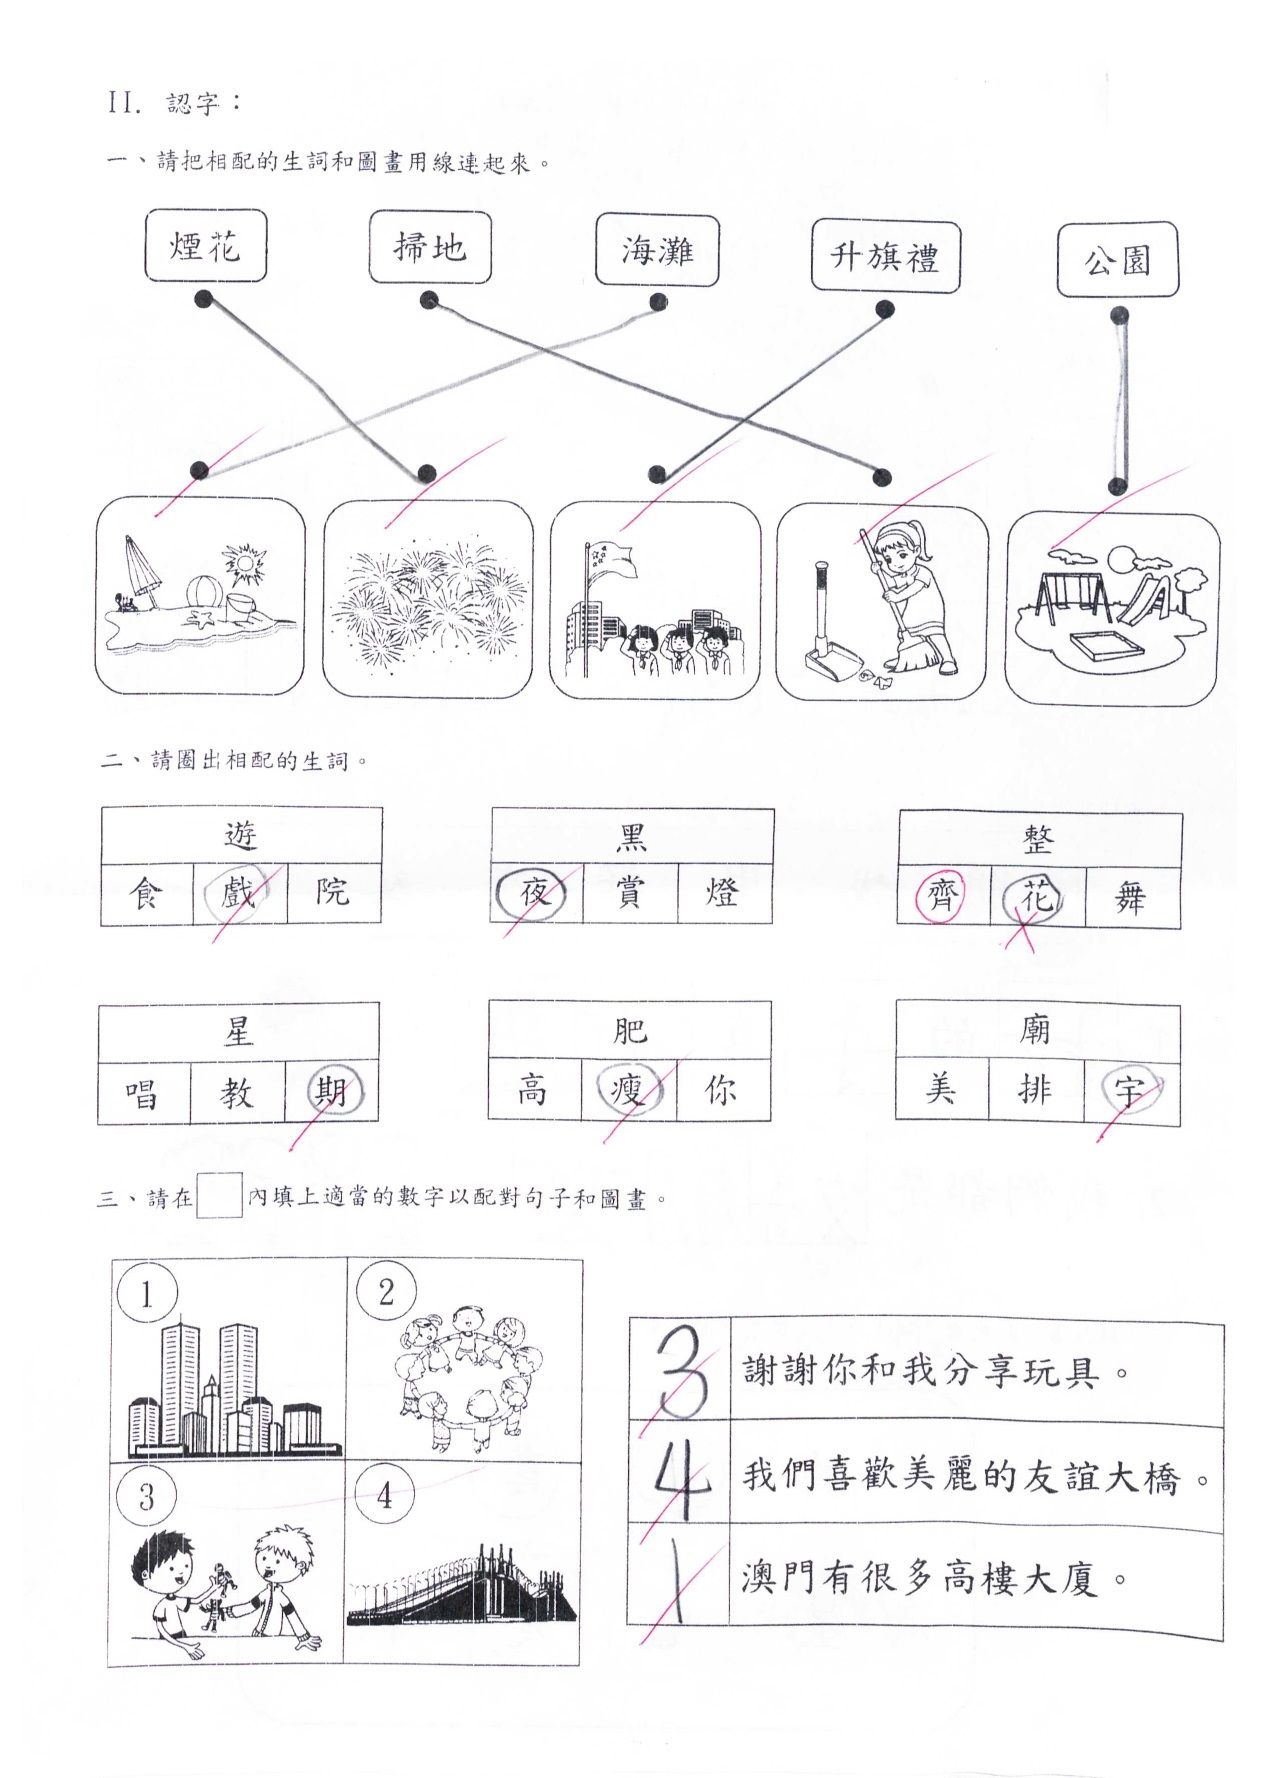 II. 認字：
一、請把相配的生詞和圖畫用線連起來。
煙花 掃地 海灘 升旗禮 公園
二、請圈出相配的生詞。
遊 黑 整
食 戲 院 夜 賞 燈 齊 花 舞
星 肥 廟
唱 教 期 高 瘦 你 美 排 宇
三、請在 內填上適當的數字以配對句子和圖畫。
1 2
3 4
3 謝謝你和我分享玩具。
4 我們喜歡美麗的友誼大橋。
1 澳門有很多高樓大廈。